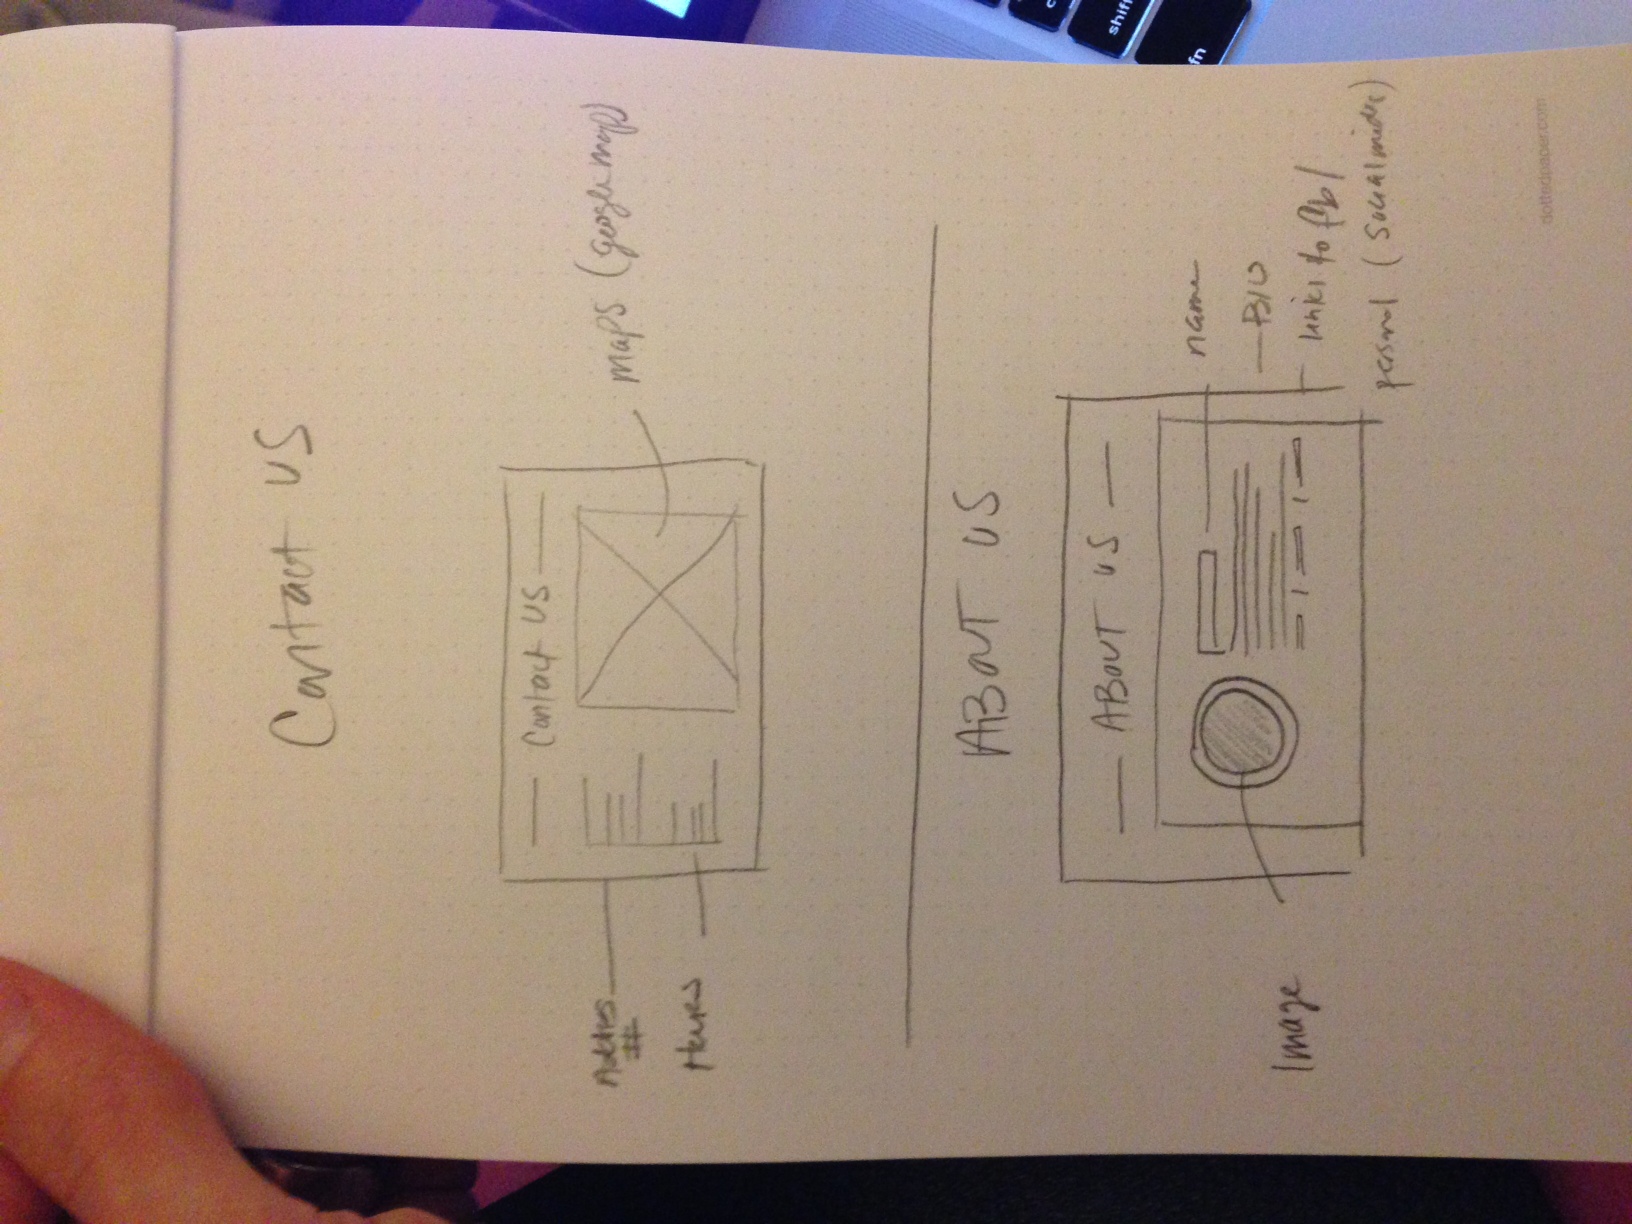 Contact US
Contact US
Address
#
maps (google map)
ABOUT US
ABOUT US
name
BIO
Image
links to fb/
personal (social media)
dottedpaper.com
shift
fn